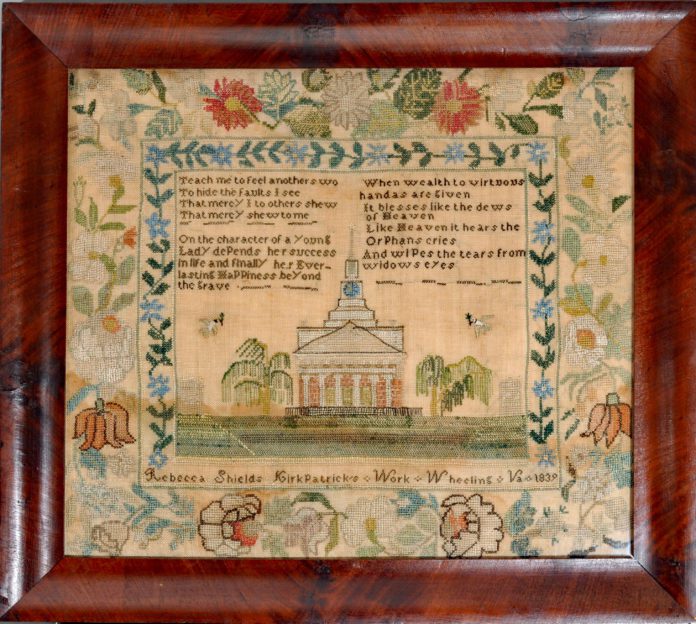 Teach me to feel anothers wo
To hide the faults I see
That mercy I to others shew
That mercy shew to me
On the character of a young
Lady depends her success
in life and finally her Ever-
lasting Happiness beyond
the grave
When wealth to virtuous
handas are given
It blesses like the dews
of Heaven
Like Heaven it hears the
Orphans cries
And wipes the tears from
widows eyes
Rebecca Shields Kirkpatricks Work Wheeling Va 1839